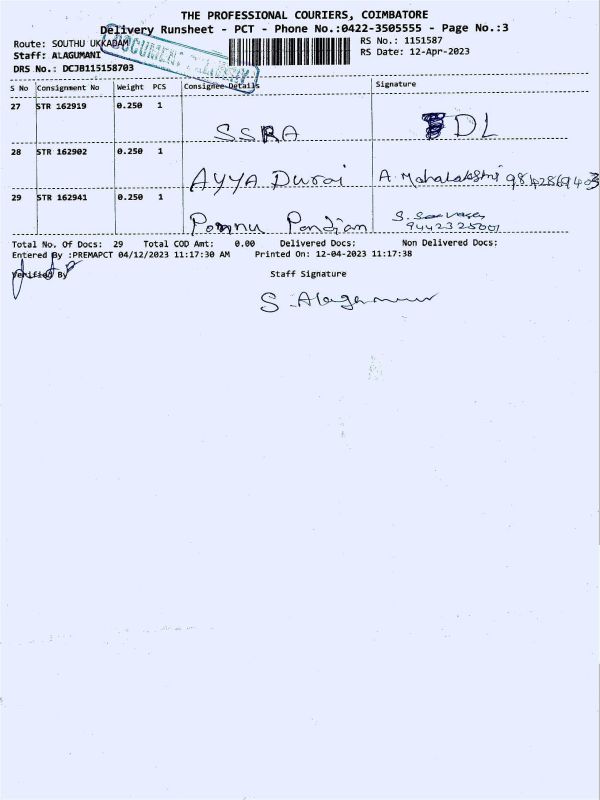 THE PROFESSIONAL COURIERS, COIMBATORE
Delivery Runsheet - PCT - Phone No.:0422-3505555 - Page No.:3
Route: SOUTHU UKKADAM
RS No.: 1151587
Staff: ALAGUMANI
RS Date: 12-Apr-2023
DRS No.: DCJB115158703
DOCUMENT DELIVERY
S No Consignment No Weight PCS Consignee Details Signature
27 STR 162919 0.250 1
SSRA DL
28 STR 162902 0.250 1
AYYA Durai A. Mahalakshmi
29 STR 162941 0.250 1
Ponnu Pandian
9442325001
Total No. Of Docs: 29 Total COD Amt: 0.00 Delivered Docs: Non Delivered Docs:
Entered By :PREMAPCT 04/12/2023 11:17:30 AM Printed On: 12-04-2023 11:17:38
Verified By Staff Signature